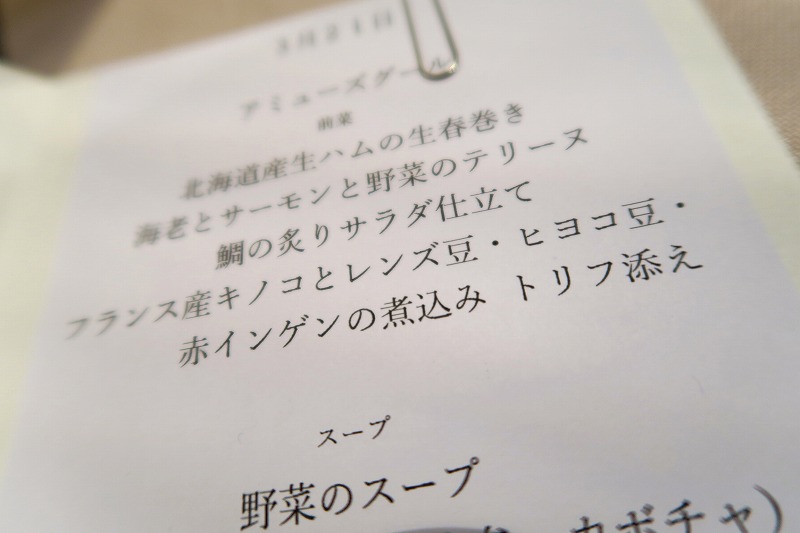 3月21日
アミューズグール
前菜
北海道産生ハムの生春巻き
海老とサーモンと野菜のテリーヌ
鯛の炙りサラダ仕立て
フランス産キノコとレンズ豆・ヒヨコ豆・
赤インゲンの煮込み トリフ添え
スープ
野菜のスープ
カボチャ）